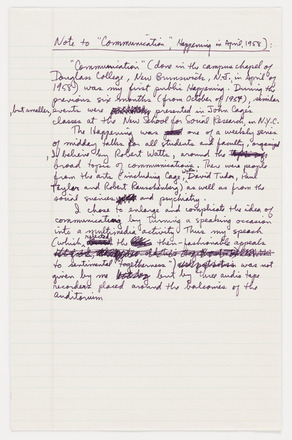 Note to "Communication" Happening in April, 1958):
"Communication" (done in the campus chapel of
Douglass College, New Brunswick, N.J. in April of
1958) was my first public Happening. During the
previous six months (from October of 1957), similar
, but smaller, events were presented in John Cage's
classes at the New School for Social Research, in N.Y.C.
The Happening was one of a weekly series
of midday talks for all students and faculty, organized
I believe by Robert Watts, around the
broad topic of communications. There were people
from the arts (including Cage, with David Tudor, Paul
Taylor and Robert Rauschenberg) as well as from the
social sciences and psychiatry.
I chose to enlarge and complicate the idea of
communication by turning a speaking occasion
into a multimedia activity. Thus my speech
(which rejected the then-fashionable appeals
to sentimental "togetherness") was not
given by me but by three audio tape
recorders placed around the balconies of the
auditorium